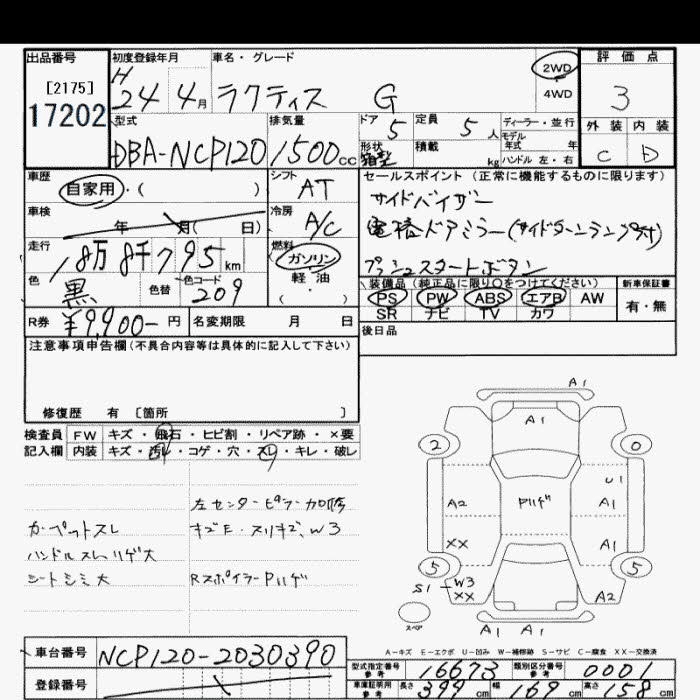 出品番号 初度登録年月 車名・グレード 2WD 4WD 評価点
[2175] 17202
H 24 4月 ラクティス G 3
型式 排気量 ドア 5 定員 5人 ディーラー・並行 外装 内装
モデル年式 年
DBA-NCP120 1500cc 形状 箱型 積載 kg ハンドル 左・右 C D
車歴 シフト セールスポイント(正常に機能するものに限ります)
自家用・( ) AT サイドバイザー
車検 年 月( 日) 冷房 A/C 電格ドアミラー(サイドターンランプ付)
走行 18万8千795km 燃料 ガソリン・軽油・ プッシュスタートボタン
色 黒 色替 色コード 209 装備品(純正品に限り○をつけてください) 新車保証書
PS PW ABS エアB AW 有・無
SR ナビ TV カワ
R券 ¥9,900-円 名変期限 月 日 後日品
注意事項申告欄(不具合内容等は具体的に記入して下さい)
修復歴 有 [箇所 ]
検査員 FW キズ・飛石・ヒビ割・リペア跡・×要
記入欄 内装 キズ・汚レ・コゲ・穴・スレ・キレ・破レ
左センターピラー加修
カーペットスレ キズE・スリキズ、W3
ハンドルスレ、ハゲ大
シートシミ大 RスポイラーPハゲ
A1
A1
2 0
U1
A2 Pハゲ A1
XX A1
5 5
S1 W3
XX A2
スペア
A1 A1
A-キズ E-エクボ U-凹み W-補修跡 S-サビ C-腐食 XX-交換済
車台番号 NCP120-2030390
型式指定番号 参考 16673 類別区分番号 参考 0001
登録番号
車庫証明用 参考 長さ 399cm 幅 169cm 高さ 158cm